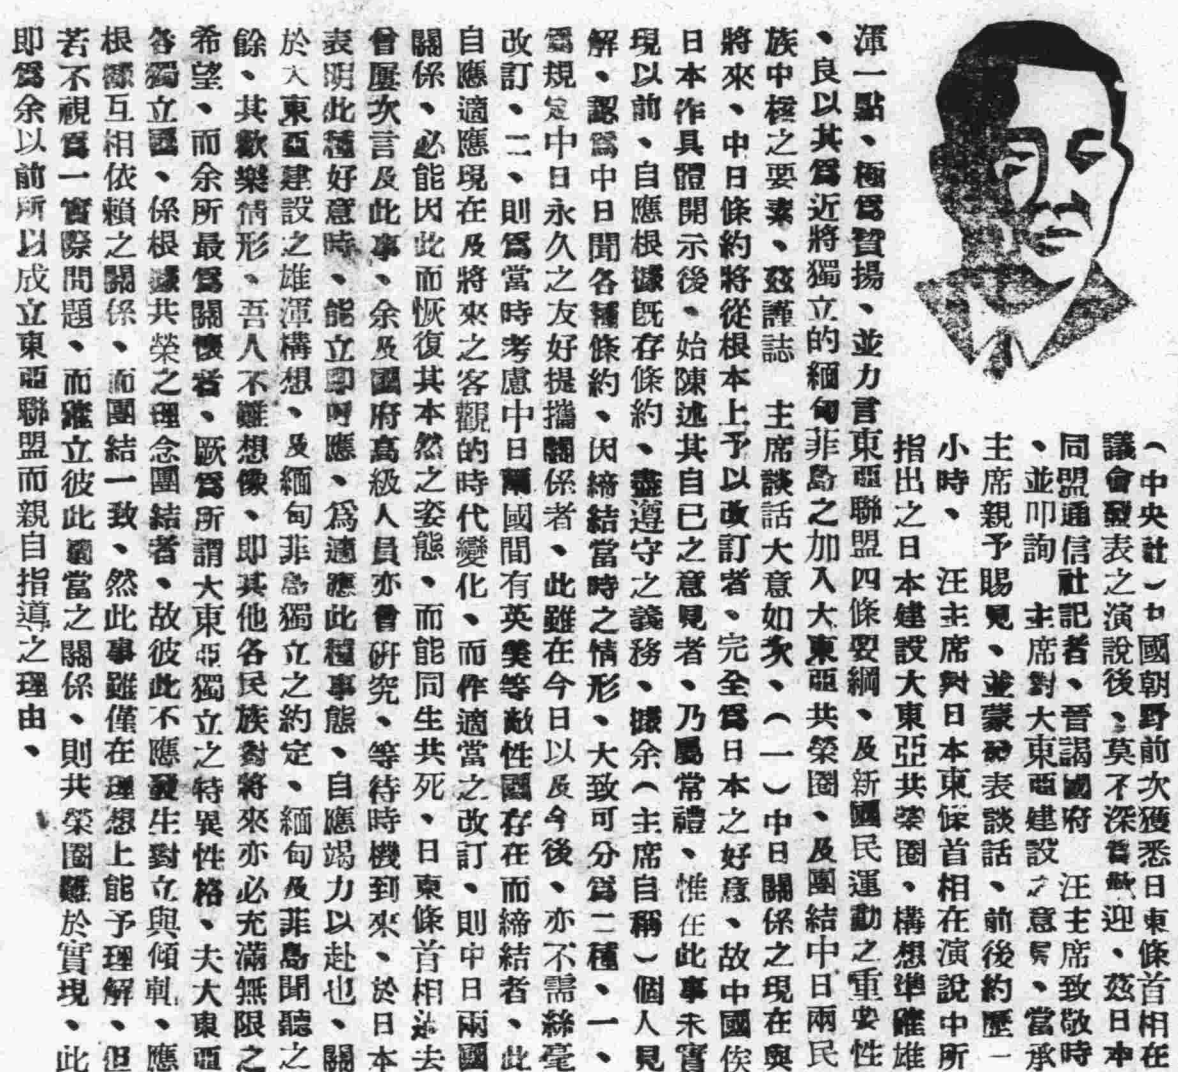 （中央社）中國朝野前次獲悉日東條首相在
議會發表之演說後、莫不深爲歡迎、茲日本
同盟通信社記者、晉謁國府　汪主席致敬時
、並叩詢　主席對大東亞建設之意見、當承
主席親予賜見、並蒙發表談話、前後約歷一
小時、　汪主席對日本東條首相在演說中所
指出之日本建設大東亞共榮圈、構想準確雄
渾一點、極爲贊揚、並力言東亞聯盟四條要綱、及新國民運動之重要性
、良以其爲近將獨立的緬甸菲島之加入大東亞共榮圈、及團結中日兩民
族中極之要素、茲謹誌　主席談話大意如次、（一）中日關係之現在與
將來、中日條約將從根本上予以改訂者、完全爲日本之好意、故中國俟
日本作具體開示後、始陳述其自己之意見者、乃屬常禮、惟在此事未實
現以前、自應根據既存條約、盡遵守之義務、據余（主席自稱）個人見
解、認爲中日間各種條約、因締結當時之情形、大致可分爲二種、一、
爲規定中日永久之友好提攜關係者、此雖在今日以及今後、亦不需絲毫
改訂、二、則爲當時考慮中日兩國間有英美等敵性國存在而締結者、此
自應適應現在及將來之客觀的時代變化、而作適當之改訂、則中日兩國
關係、必能因此而恢復其本然之姿態、而能同生共死、日東條首相過去
曾屢次言及此事、余及國府高級人員亦曾研究、等待時機到來、於日本
表明此種好意時、能立即呼應、爲適應此種事態、自應竭力以赴也、關
於大東亞建設之雄渾構想、及緬甸菲島獨立之約定、緬甸及菲島聞聽之
餘、其歡樂情形、吾人不難想像、即其他各民族對將來亦必充滿無限之
希望、而余所最爲關懷者、厥爲所謂大東亞獨立之特異性格、夫大東亞
各獨立國、係根據共榮之理念團結者、故彼此不應發生對立與傾軋、應
根據互相依賴之關係、而團結一致、然此事雖僅在理想上能予理解、但
若不視爲一實際問題、而確立彼此適當之關係、則共榮圈難於實現、此
即爲余以前所以成立東亞聯盟而親自指導之理由、